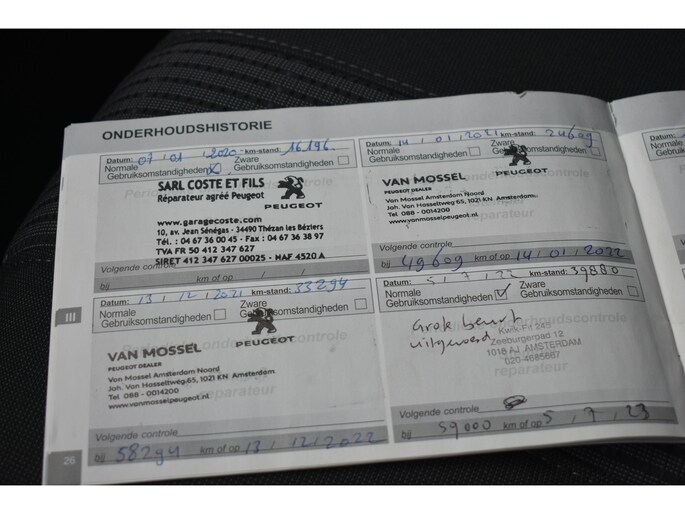 ONDERHOUDSHISTORIE
Datum: 07 / 01 / 2020 km-stand: 16196
Normale Gebruiksomstandigheden
Zware Gebruiksomstandigheden
SARL COSTE ET FILS
Réparateur agréé Peugeot
PEUGEOT
www.garagecoste.com
10, av. Jean Sénégas - 34490 Thézan les Béziers
Tél. : 04 67 36 00 45 - Fax : 04 67 36 38 97
TVA FR 50 412 347 627
SIRET 412 347 627 00025 - NAF 4520 A
Volgende controle
bij km of op / /
Datum: 14 / 01 / 2021 km-stand: 24609
Normale Gebruiksomstandigheden
Zware Gebruiksomstandigheden
VAN MOSSEL
PEUGEOT DEALER
PEUGEOT
Van Mossel Amsterdam Noord
Joh. Van Hasseltweg 65, 1021 KN Amsterdam
Tel 088 - 0014200
www.vanmosselpeugeot.nl
Volgende controle
bij 49609 km of op 14 / 01 / 2022
Datum: 13 / 12 / 2021 km-stand: 33294
Normale Gebruiksomstandigheden
Zware Gebruiksomstandigheden
VAN MOSSEL
PEUGEOT DEALER
PEUGEOT
Van Mossel Amsterdam Noord
Joh. Van Hasseltweg 65, 1021 KN Amsterdam
Tel 088 - 0014200
www.vanmosselpeugeot.nl
Volgende controle
bij 58294 km of op 13 / 12 / 2022
Datum: 5 / 7 / 22 km-stand: 39880
Normale Gebruiksomstandigheden
Zware Gebruiksomstandigheden
Grote beurt
uitgevoerd
Kwik Fit 245
Zeeburgerpad 12
1018 AJ AMSTERDAM
reparateur
Volgende controle
bij 59000 km of op 5 / 7 / 23
III
26